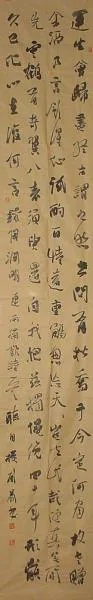 運生會歸盡終古謂之然世間有松喬於今定何間故老贈
余酒乃言飲得仙試酌百情遠重觴忽忘天天豈去此哉任真無所
先雲鶴有奇翼八表須臾還自我抱茲獨僶俛四十年形骸
久已化心在復何言錄陶淵明連雨獨飲